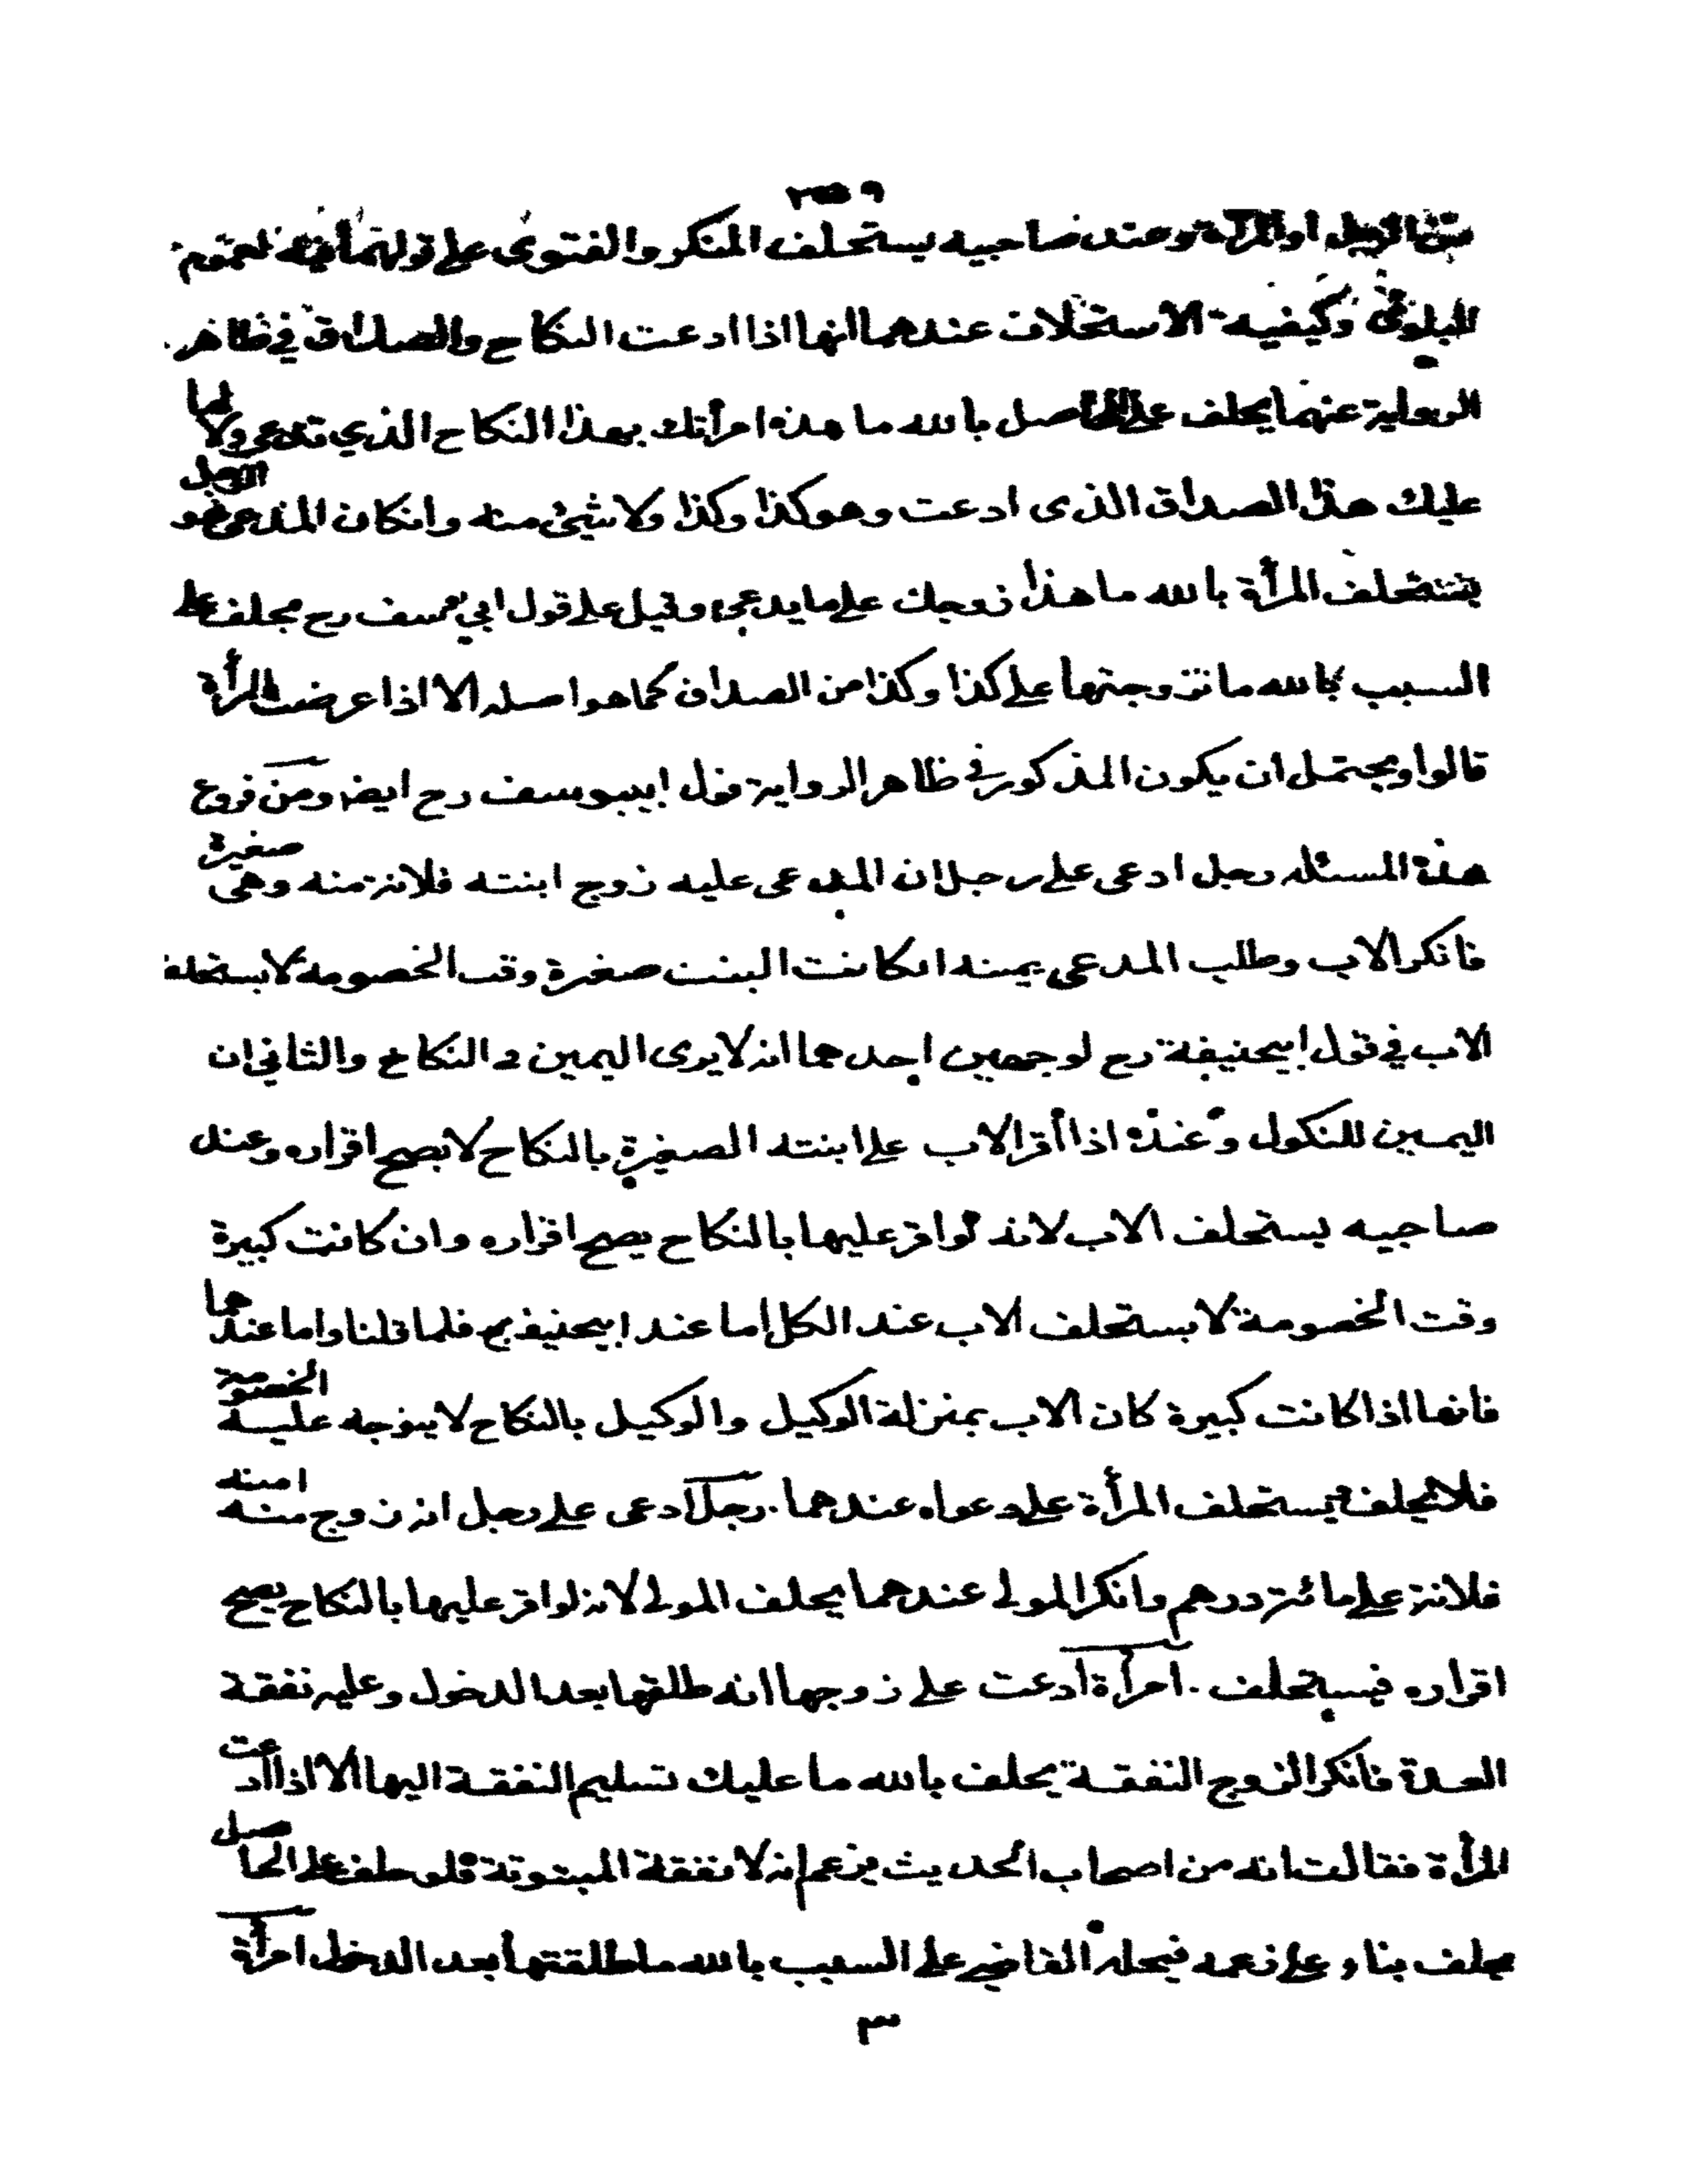 من الرجل او المرأة وعند صاحبيه يستحلف المنكر والفتوى على قولهما فيه لعموم
البلوى وكيفية الاستحلاف عندهما انها اذا ادعت النكاح والصداق في ظاهر
الرواية عنهما يحلف على الحاصل بالله ما هذه امرأتك بهذا النكاح الذي تدعى ولا لها
عليك هذا الصداق الذى ادعت وهو كذا وكذا ولا شئ منه وانكان المدعى هو الرجل
يستحلف المرأة بالله ما هذا زوجك على ما يدعى وقيل على قول ابي يوسف رح يحلف على
السبب بالله ما تزوجتها على كذا وكذا من الصداق كما هو اصله الا اذا عرضت المرأة
قالوا ويحتمل ان يكون المذكور في ظاهر الرواية قول ابييوسف رح ايضا ومن فروع
هذه المسئله رجل ادعى على رجل ان المدعى عليه زوج ابنته فلانة منه وهى صغيرة
فانكر الاب وطلب المدعى يمينه انكانت البنت صغيرة وقت الخصومة لا يستحلف
الاب في قول ابيحنيفة رح لوجهين احدهما انه لا يرى اليمين في النكاح والثاني ان
اليمين للنكول وعنده اذا أقر الاب على ابنته الصغيرة بالنكاح لا يصح اقراره وعند
صاحبيه يستحلف الاب لانه لو اقر عليها بالنكاح يصح اقراره وان كانت كبيرة
وقت الخصومة لا يستحلف الاب عند الكل اما عند ابيحنيفه رح فلما قلنا واما عندهما
فانها اذا كانت كبيرة كان الاب بمنزلة الوكيل والوكيل بالنكاح لا يتوجه عليه الخصومة
فلا يحلف يستحلف المرأة على دعواه عندهما . رجل ادعى على رجل انه زوج منه امته
فلانة على مائة درهم وانكر المولى عندهما يحلف المولى لانه لو اقر عليها بالنكاح يصح
اقراره فيستحلف . امرأة ادعت على زوجها انه طلقها بعد الدخول وعليه نفقة
العدة فانكر الزوج النفقة يحلف بالله ما عليك تسليم النفقة اليها الا اذا ادعت
المرأة فقالت انه من اصحاب الحديث يزعم انه لا نفقة المبتوتة فلو حلف على الحاصل
يحلف بناء على زعمه فيحلفه القاضي على السبب بالله ما طلقتها بعد الدخول امرأة
٣